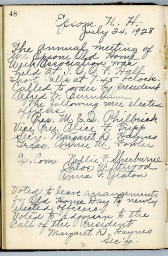 48
Epsom N. H.
July 24, 1928
The annual meeting of
the Epsom Old Home
Week Association was
held at
at 7.45 o'clock.
Called to order by President
Alfred
The following were elected
officers
Pres. M. E. S. Philbrick
Vice Pres. Alice M. Tripp
Sec'y. Margaret D. Haynes
Treas. Annie M. Fowler
Ex. Com. Nellie F. Sherburne
Chloe
Voted to leave arrangements
of Old Home Day to newly
elected officers.
Voted to adjourn to the
call of the President.
Margaret D. Haynes
Sec'y.